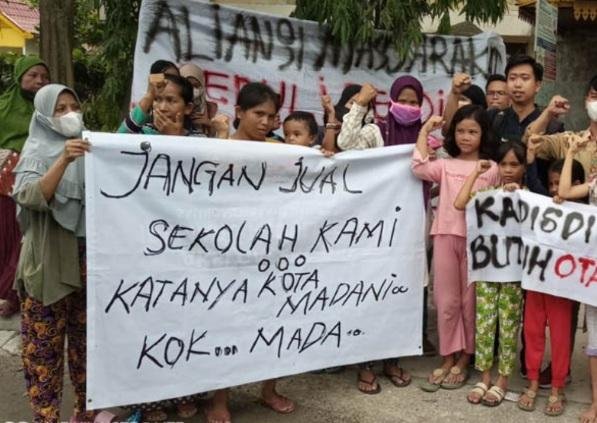 ALIANSI MASYARAK
PEDULI
JANGAN JUAL
SEKOLAH KAMI
KATANYA KOTA
MADANI..
KOK... MADA...
KADISDI
BUTUH OTA